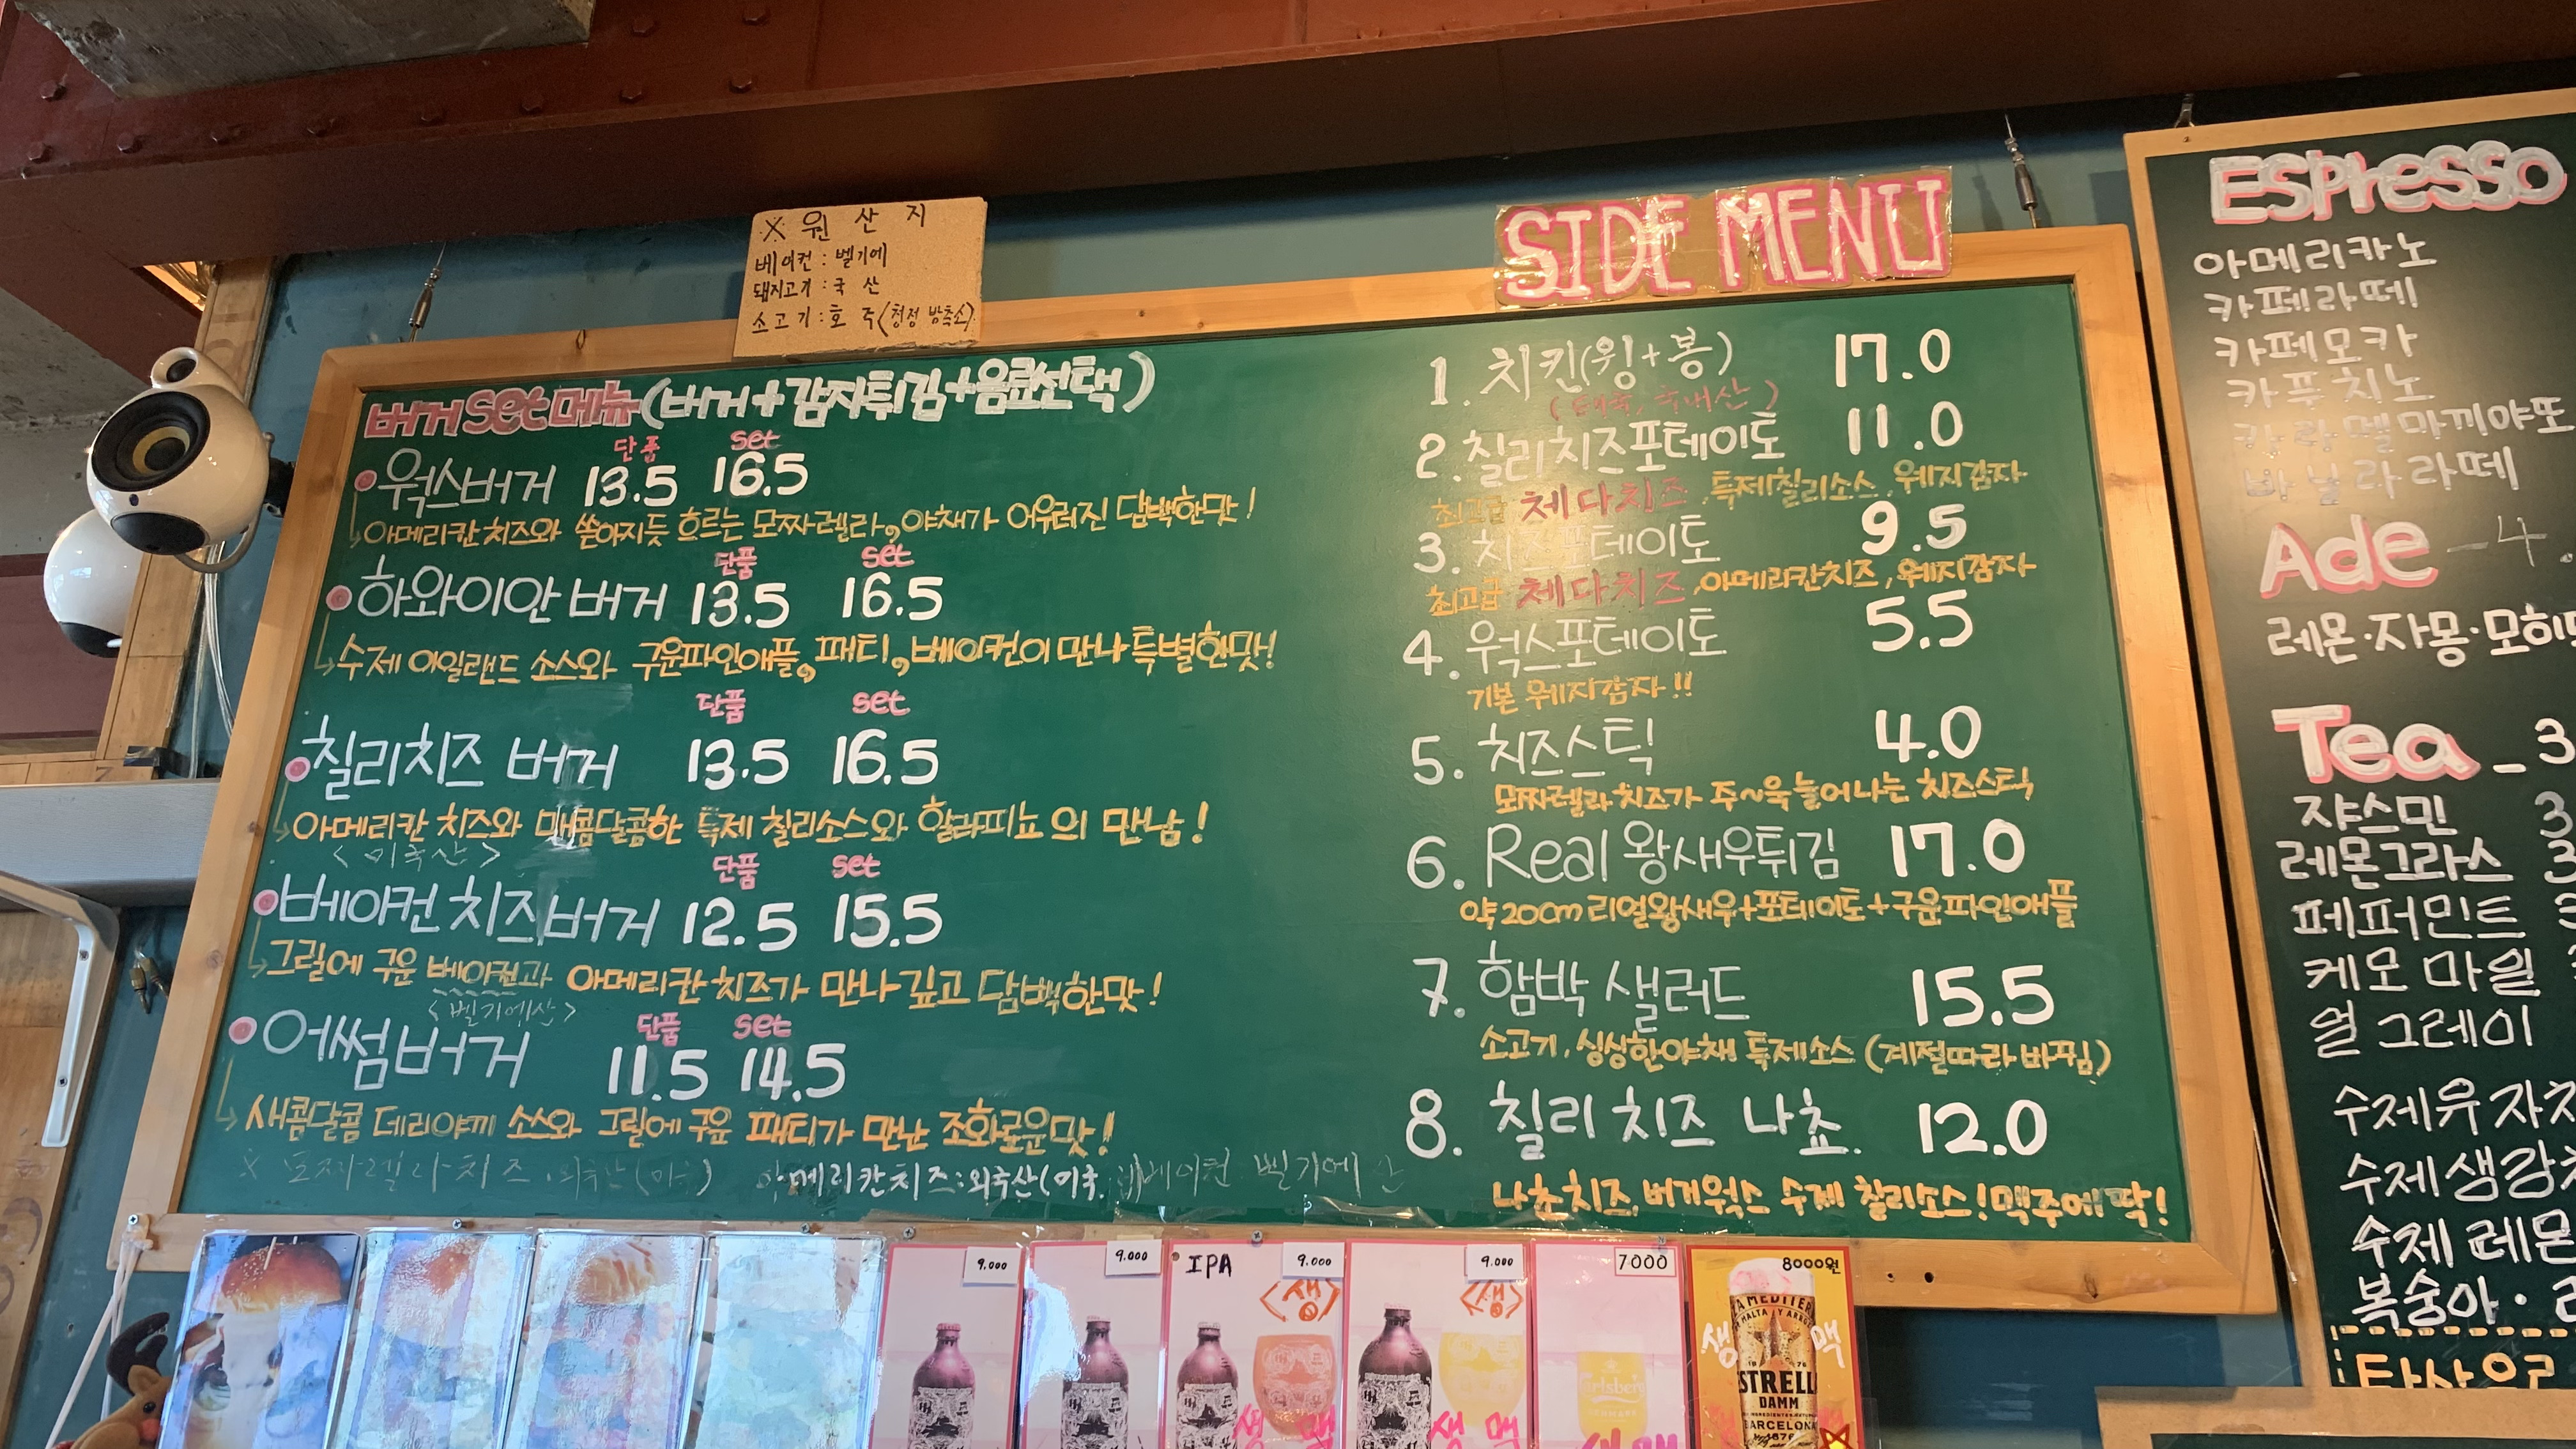 ※ 원 산 지
베이컨 : 벨기에
돼지고기 : 국 산
소고기 : 호 주 (청정 방축소)
버거 set 메뉴 (버거+감자튀김+음료선택)
단품 set
웍스버거 13.5 16.5
아메리칸 치즈와 쏟아지듯 흐르는 모짜렐라, 야채가 어우러진 담백한맛!
단품 set
하와이안 버거 13.5 16.5
수제 아일랜드 소스와 구운파인애플, 패티, 베이컨이 만나 특별한맛!
단품 set
칠리치즈 버거 13.5 16.5
아메리칸 치즈와 매콤달콤한 특제 칠리소스와 할라피뇨의 만남!
<미국산>
단품 set
베이컨 치즈버거 12.5 15.5
그릴에 구운 베이컨과 아메리칸 치즈가 만나 깊고 담백한맛!
<벨기에산>
단품 set
어썸버거 11.5 14.5
새콤달콤 데리야끼 소스와 그릴에 구운 패티가 만난 조화로운맛!
※ 모짜렐라치즈 : 외국산(미국) 아메리칸치즈:외국산(미국 베이컨 벨기에산
SIDE MENU
1. 치킨(윙+봉) 17.0
(태국, 국내산)
2. 칠리치즈포테이토 11.0
최고급 체다치즈, 특제칠리소스, 웨지감자
3. 치즈포테이토 9.5
최고급 체다치즈, 아메리칸치즈, 웨지감자
4. 웍스포테이토 5.5
기본 웨지감자!!
5. 치즈스틱 4.0
모짜렐라 치즈가 주~욱 늘어나는 치즈스틱
6. Real 왕새우튀김 17.0
약 20cm 리얼왕새우+포테이토+구운파인애플
7. 함박 샐러드 15.5
소고기, 싱싱한야채 특제소스 (계절따라 바뀜)
8. 칠리 치즈 나쵸. 12.0
나쵸치즈, 버거웍스 수제 칠리소스! 맥주에 딱!
Espresso
아메리카노
카페라떼
카페모카
카푸치노
카라멜마끼야또
바닐라라떼
Ade - 4.
레몬·자몽·모히
Tea - 3
쟈스민 3
레몬그라스 3
페퍼민트 3
케모마일
얼그레이
수제유자
수제생강
수제레몬
복숭아 ·
탄산음료
9.000
9.000
IPA 9.000
<생>
생 맥
9.000
<생>
생 맥
7000
Carlsberg
생맥
8000원
생 맥
ESTRELLA
DAMM
BARCELONA
1876